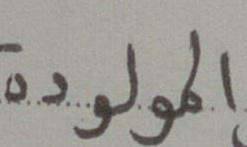 المولوده